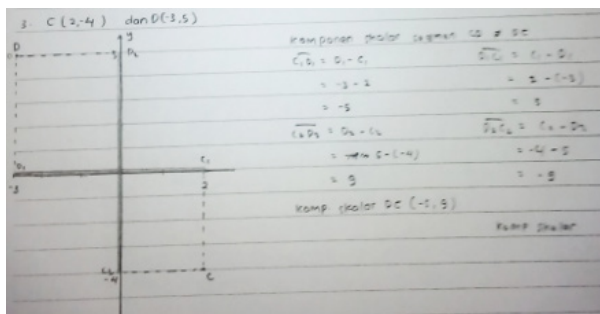 3. C (2,-4) dan D(-3,5)
y
D
5
D₂
D₁
-3
C₁
2
C₂
-4
C
Komponen skalar segmen CD & DC
C₁D₁ = D₁ - C₁
= -3 - 2
= -5
C₂D₂ = D₂ - C₂
= 5-(-4)
= 9
Komp. skalar DC (-5, 9)
D₁C₁ = C₁ - D₁
= 2 - (-3)
= 5
D₂C₂ = C₂ - D₂
= -4 - 5
= -9
Komp skalar